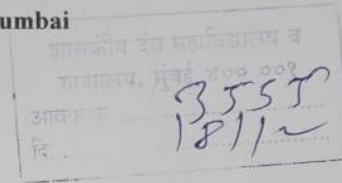 umbai
शासकीय दंत महाविद्यालय व
रुग्णालय, मुंबई ४०० ००१
आवक क्र.
दि.